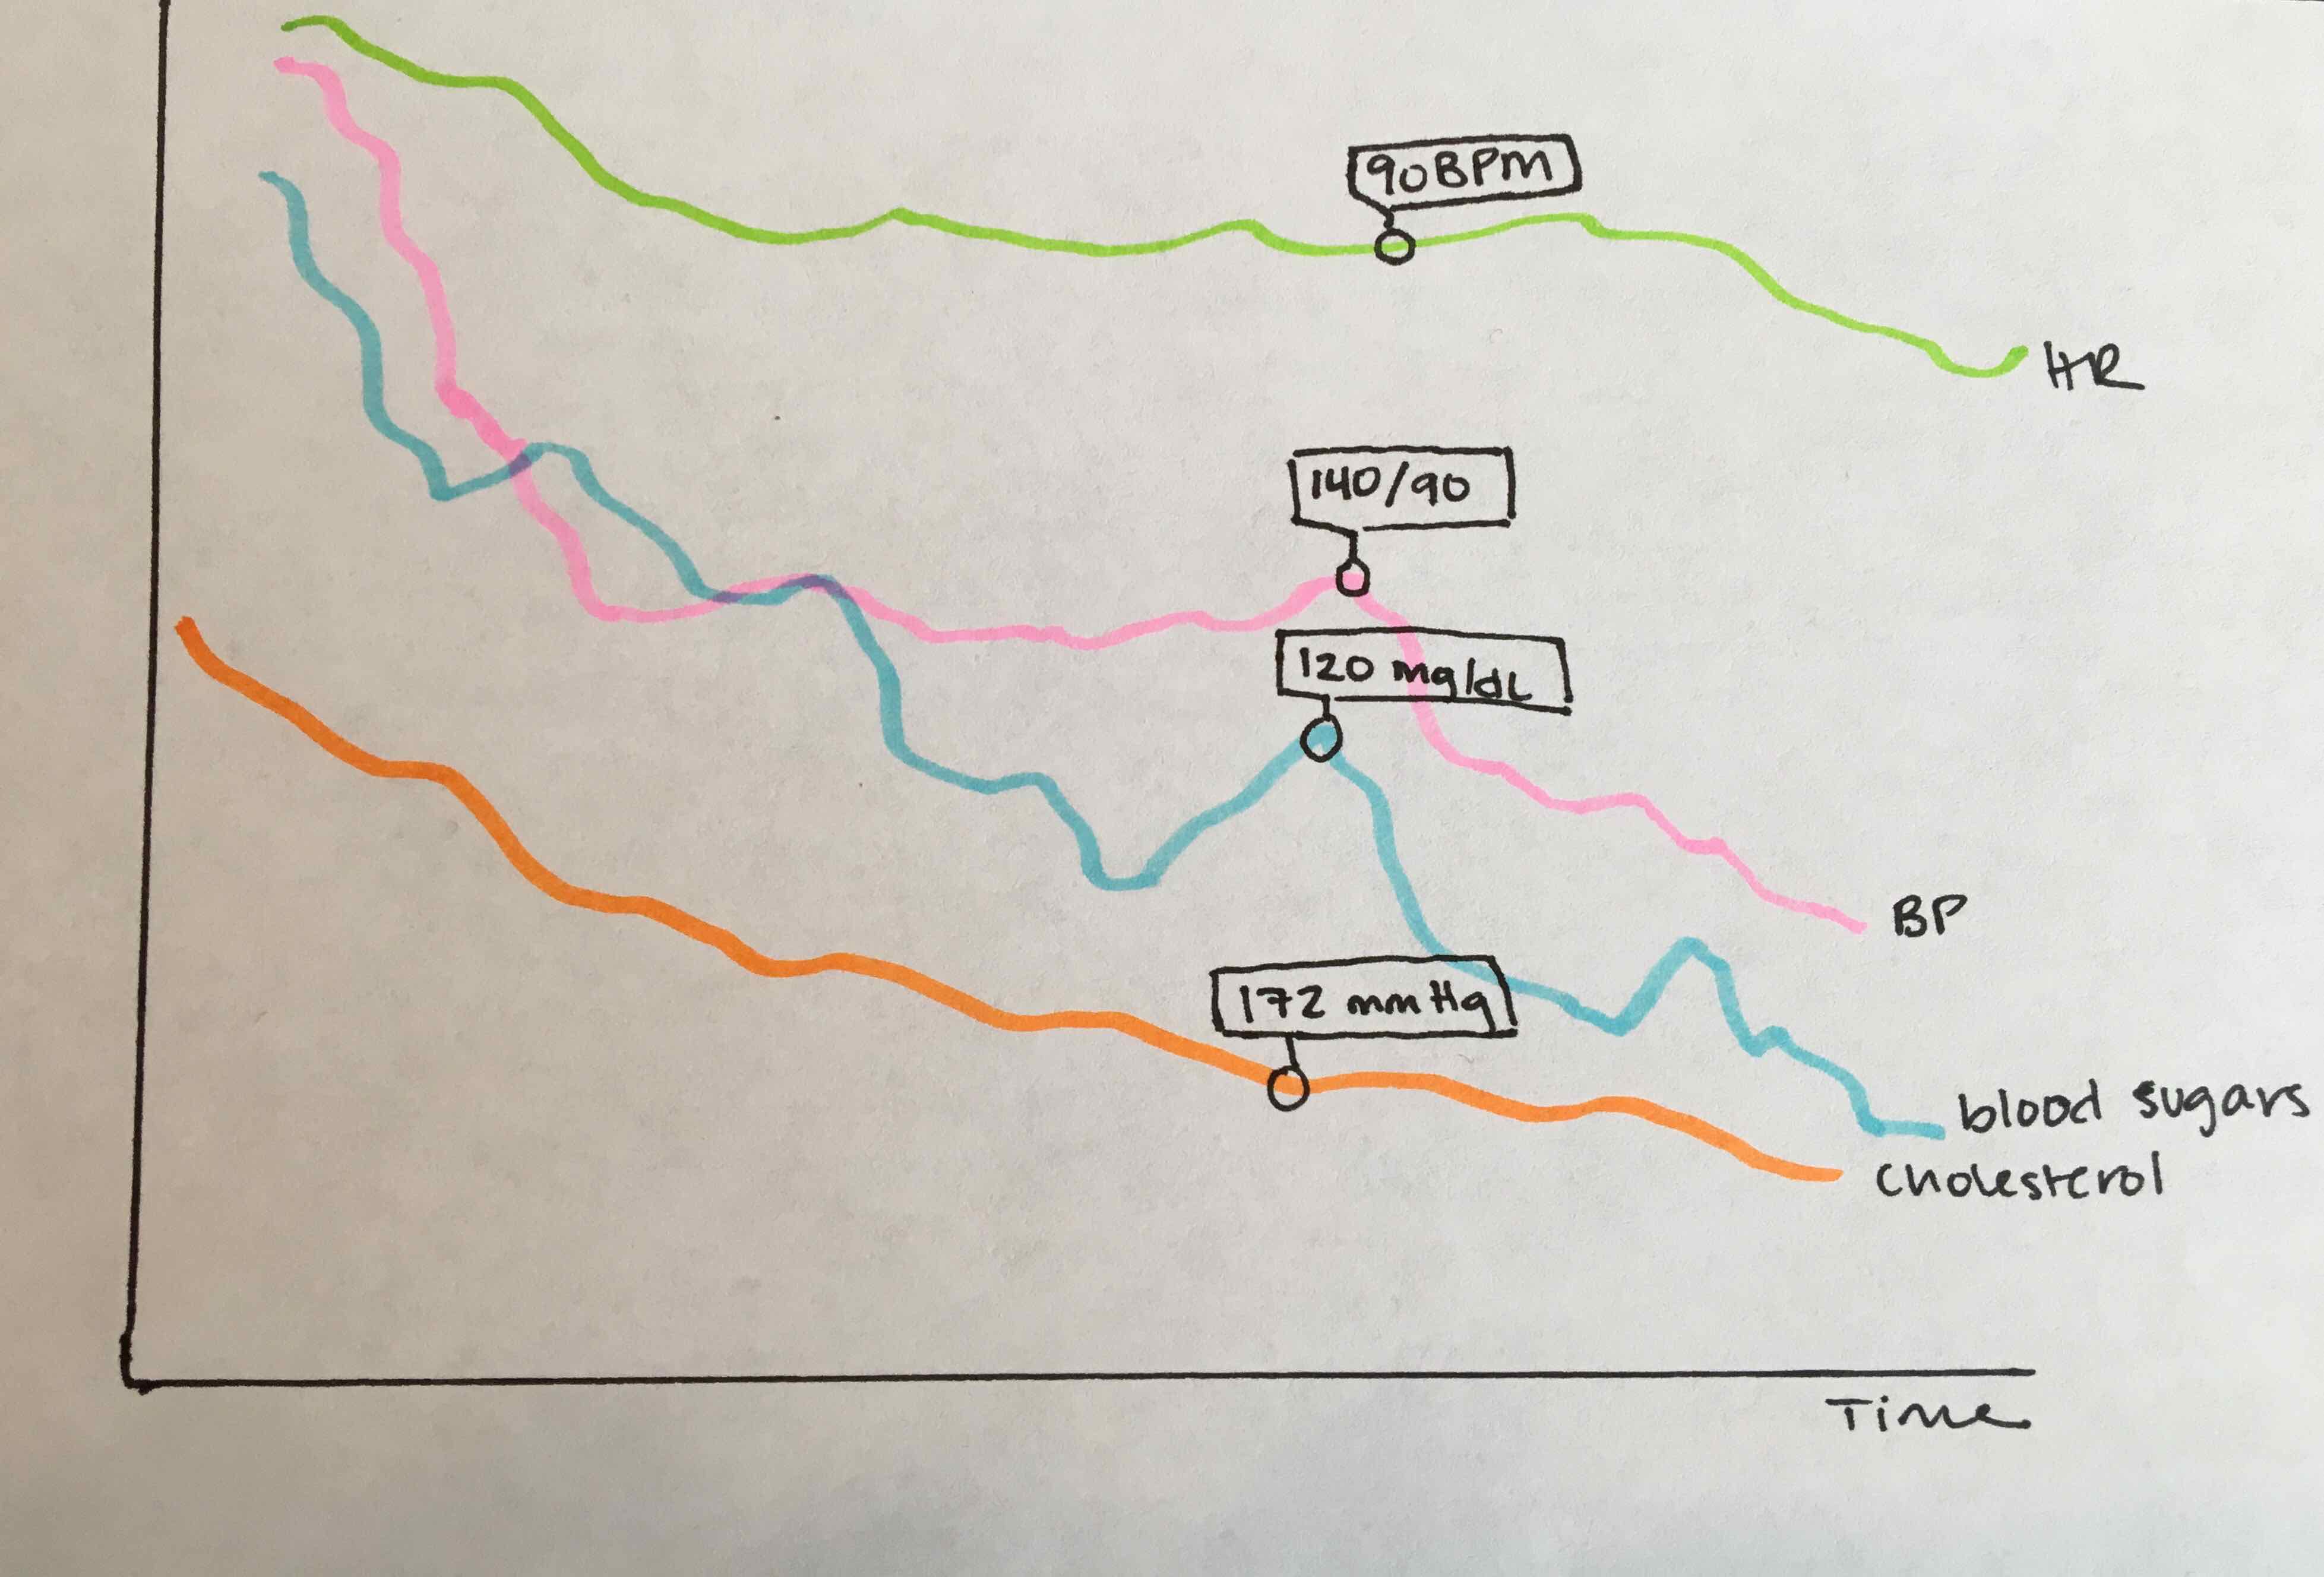 90BPM
HR
140/90
120 mg/dL
BP
172 mmHg
blood sugars
cholesterol
Time